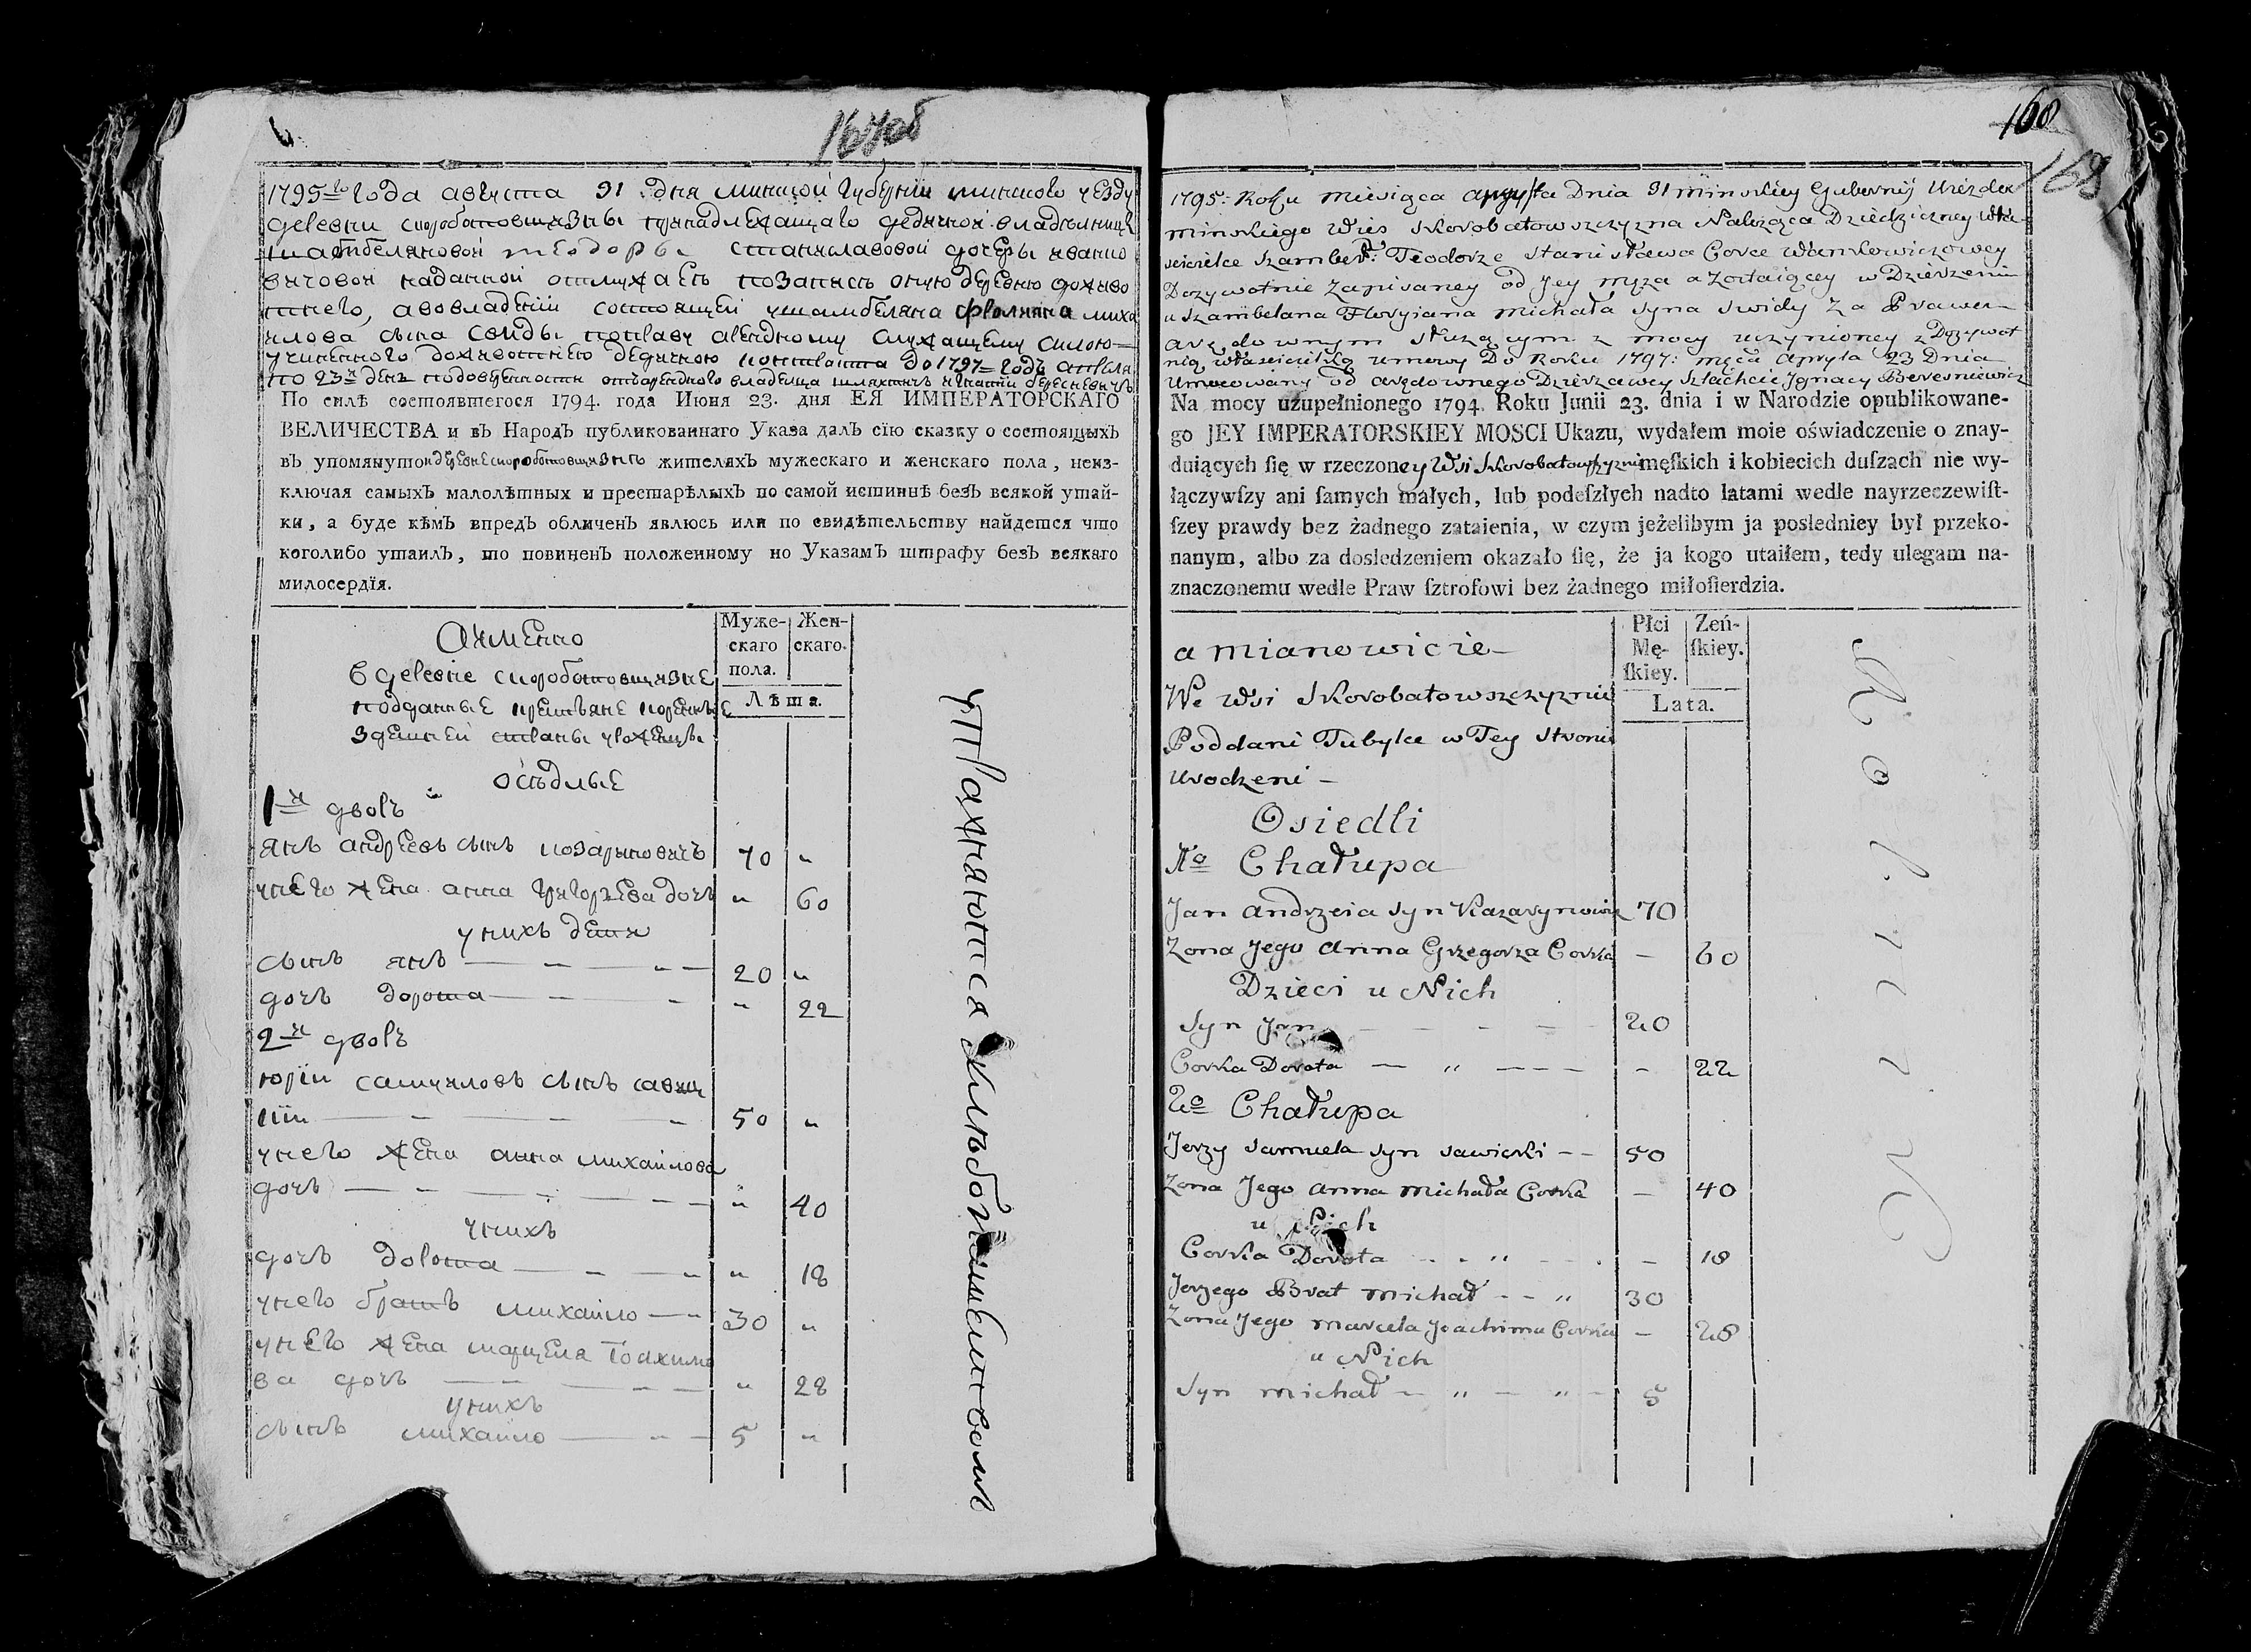 168
1795го года августа 31 дня минской губернии минского уезду
деревни скоробатовщизны принадлежащаго дедичной владельнице
шамбеляновой теодоры станиславовой дочеры иванко
вичовой наданной отмужаеъ позапись оную деревню доживо
тнего, авовладении состоящей ушамбеляна флорияна миха
илова сына свиды поправу арендному служащему силою
учиненного доживотнею дедичкою контракта до 1797 года апреля
по 23й день подоверенности отъарендного владелца шляхтичъ игнатий бересневичъ
По силѣ состоявшегося 1794. года Июня 23. дня ЕЯ ИМПЕРАТОРСКАГО
ВЕЛИЧЕСТВА и въ НародЪ публикованнаго Указа далЪ сїю сказку о состоящыхЪ
вЪ упомянутой деревне скоробатовщизнъ жителяхЪ мужескаго и женскаго пола, неиз-
ключая самыхЪ малолѣтныхъ и престарѣлыхЪ по самой истиннѣ безЪ всякой утай-
ки, а буде кѣмЪ впредЪ обличенЪ явлюсь или по свидѣтельству найдется что
коголибо утаилЪ, то повиненЪ положенному по УказамЪ штрафу безЪ всякаго
милосердїя.
Муже-скаго пола.
Жен-скаго.
Лѣта.
Аименно
в деревне скоробатовщизне
подданные крестьяне коренные
здешней страны уроженцы
осъдлые
1й дворъ
янъ андреевъ сынъ козарыновичъ 70 "
унего жена анна григорьева дочъ " 60
унихъ дети
сынъ янъ — 20 "
дочъ дорота — " 22
2й дворъ
юрїи самуиловъ сынъ савиц
кїи — 50 "
унего жена анна михайлова
дочъ — " 40
унихъ
дочъ дорота — " 18
унего братъ михайло — 30 "
унего жена марцеля иоахимо
ва дочъ — " 28
унихъ
сынъ михайло — 5 "
упражняются хлѣбопашествомъ
168
1795: Roku miesiąca Augusta Dnia 31 minskiey Gubernij Uiezdu
minskiego Wies Skorobatowszczyzna Naleząca Dziedziczney Wła-
scicielce Szambel: Teodorze Stanisława Corce Wankowiczowey
Dozywotnie Zapisaney od Jey męza a Zostaiącey w Dzierzeniu
u Szambelana Floryiana Michała syna Swidy Za Prawem
arędownym słuzącym z mocy uczynioney z Dozywot
nią właścicielką umowy Do Roku 1797: męca Apryla 23 Dnia
Umocowany od arędownego Dzierzawcy Szlachcic Jgnacy Beresniewicz
Na mocy uzupełnionego 1794. Roku Junii 23. dnia i w Narodzie opublikowane-
go JEY IMPERATORSKIEY MOSCI Ukazu, wydałem moie oświadczenie o znay-
duiących ſię w rzeczoney Wsi Skorobatowszyznie męſkich i kobiecich duſzach nie wy-
łączywſzy ani ſamych małych, lub podeſzłych nadto latami wedle nayrzeczewiſt-
ſzey prawdy bez żadnego zataienia, w czym jeżelibym ja posledniey był przeko-
nanym, albo za dosledzeniem okazało ſię, że ja kogo utaiłem, tedy ulegam na-
znaczonemu wedle Praw ſztrofowi bez żadnego miłoſierdzia.
Płci Mę-ſkiey.
Zeń-ſkiey.
Lata.
a mianowicie
We Wsi Skorobatowszczyznie
Poddani Tubylce w Tey stronie
Urodzeni
Osiedli
1o Chałupa
Jan Andrzeia Syn Kazarynowicz 70
Zona Jego Anna Grzegorza Corka — 60
Dzieci u Nich
Syn Jan — 20
Corka Dorota — 22
2o Chałupa
Jerzy Samuela Syn Sawicki -- 50
Zona Jego Anna Michała Corka — 40
u Nich
Corka Dorota — 18
Jerzego Brat Michał -- 30
Zona Jego Marcela Joachima Corka — 28
u Nich
Syn Michał — 5
Rolnicy